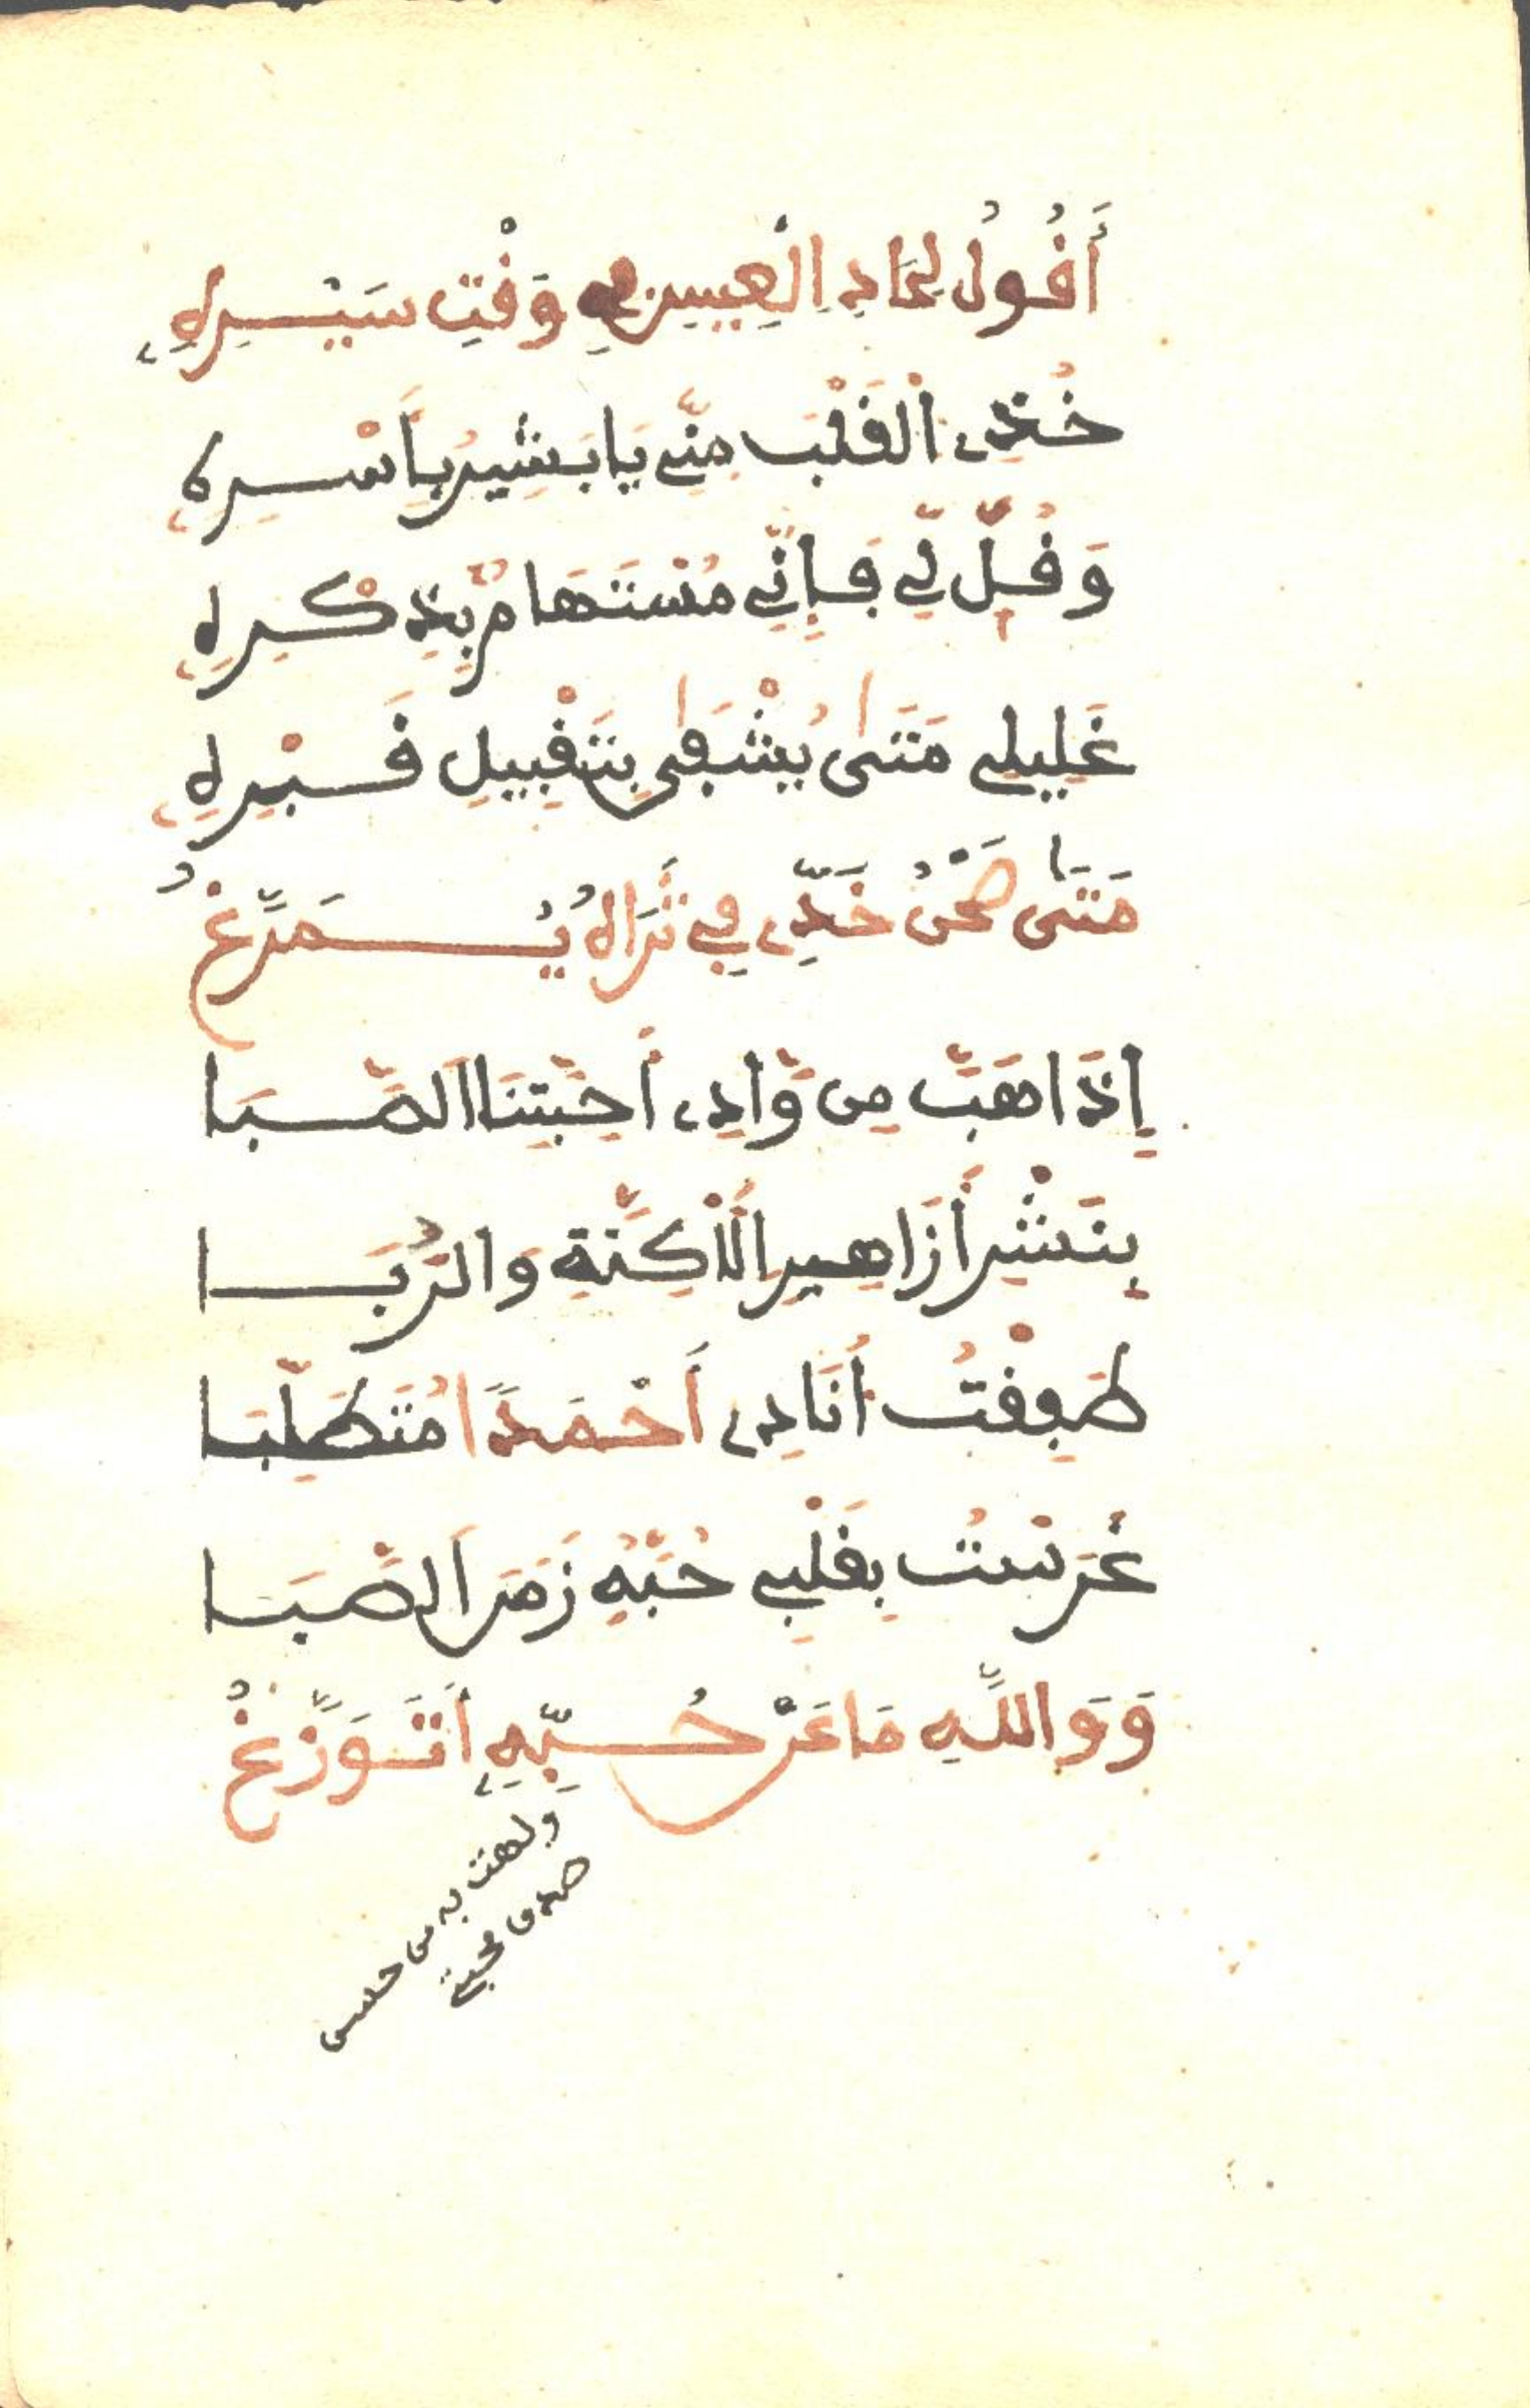 أَقُولُ لِحَادِ الْعِيسِ فِي وَقْتِ سَيْرِهِ
خُذِ الْقَلْبَ مِنِّي يَا بَشِيرُ بِأَسْرِهِ
وَقُلْ لِّي فَإِنِّي مُسْتَهَامٌ بِذِكْرِهِ
غَلِيلِي مَتَىٰ يُشْفَىٰ بِتَقْبِيلِ قَبْرِهِ
مَتَىٰ صَحْنُ خَدِّي فِي ثَرَاهُ يُمَرَّغُ
إِذَا هَبَّ مِن وَّادِي أَحِبَّتِنَا الصَّبَا
بِنَشْرِ أَزَاهِيرِ الْأَكِنَّةِ وَالرُّبَا
طَفِقْتُ أُنَادِي أَحْمَدًا مُتَطَلِّبَا
غَرَسْتُ بِقَلْبِي حُبَّهُ زَمَنَ الصِّبَا
وَوَاللَّهِ مَا عَنْ حُبِّهِ أَتَوَزَّغُ
ولهت به من حسن
صدق محبتي